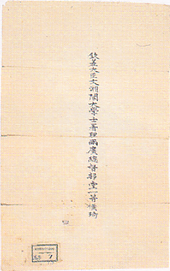 欽差大臣文淵閣大學士署理兩廣總督部堂一等侯琦